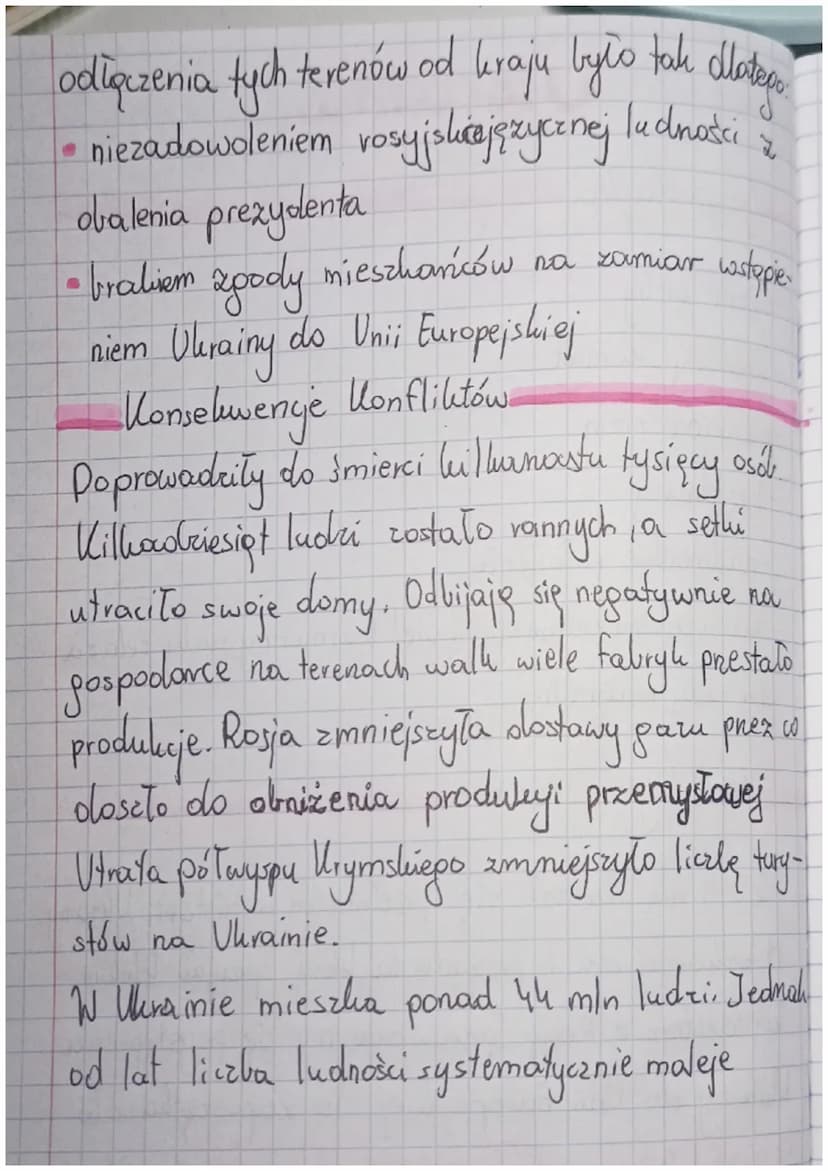 odłączenia tych terenów od kraju było tak dlatego:
• niezadowoleniem rosyjskojęzycznej ludności z
obalenia prezydenta
• brakiem zgody mieszkańców na zamiar wstępie-
niem Ukrainy do Unii Europejskiej
Konsekwencje Konfliktów
Doprowadziły do śmierci kilkunastu tysięcy osób.
Kilkadziesiąt ludzi zostało rannych, a setki
utraciło swoje domy. Odbijają się negatywnie na
gospodarce na terenach walk wiele fabryk przestało
produkcje. Rosja zmniejszyła dostawy gazu przez co
doszło do obniżenia produkcji przemysłowej
Utrata półwyspu Krymskiego zmniejszyło liczbę tury-
stów na Ukrainie.
W Ukrainie mieszka ponad 44 mln ludzi. Jednak
od lat liczba ludności systematycznie maleje